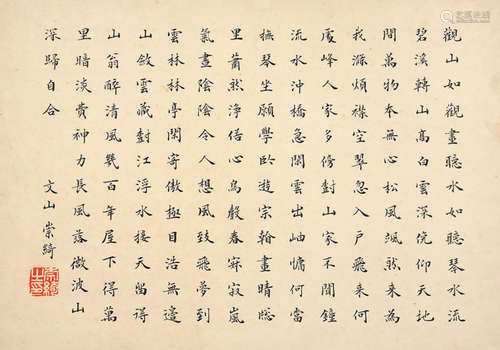 觀山如觀畫聽水如聽琴水流
碧溪轉山高白雲深俛仰天地
間萬物本無心松風颯然來為
我滌煩襟空翠忽入戶飛來何
處峰人家多傍對山家不聞鐘
流水沖橋急閑雲出岫慵何當
撫琴坐願學臥遊宗翰畫晴窗
里蕭然淨俗心鳥聲春寂寂嵐
氣晝陰陰令人想風致飛夢到
雲林林亭閑寄傲極目浩無邊
山斂雲藏封江浮水接天留得
山翁醉清風幾百年屋下得萬
里暗淡費神力長風落微波山
深歸自合
文山崇綺
崇綺之印